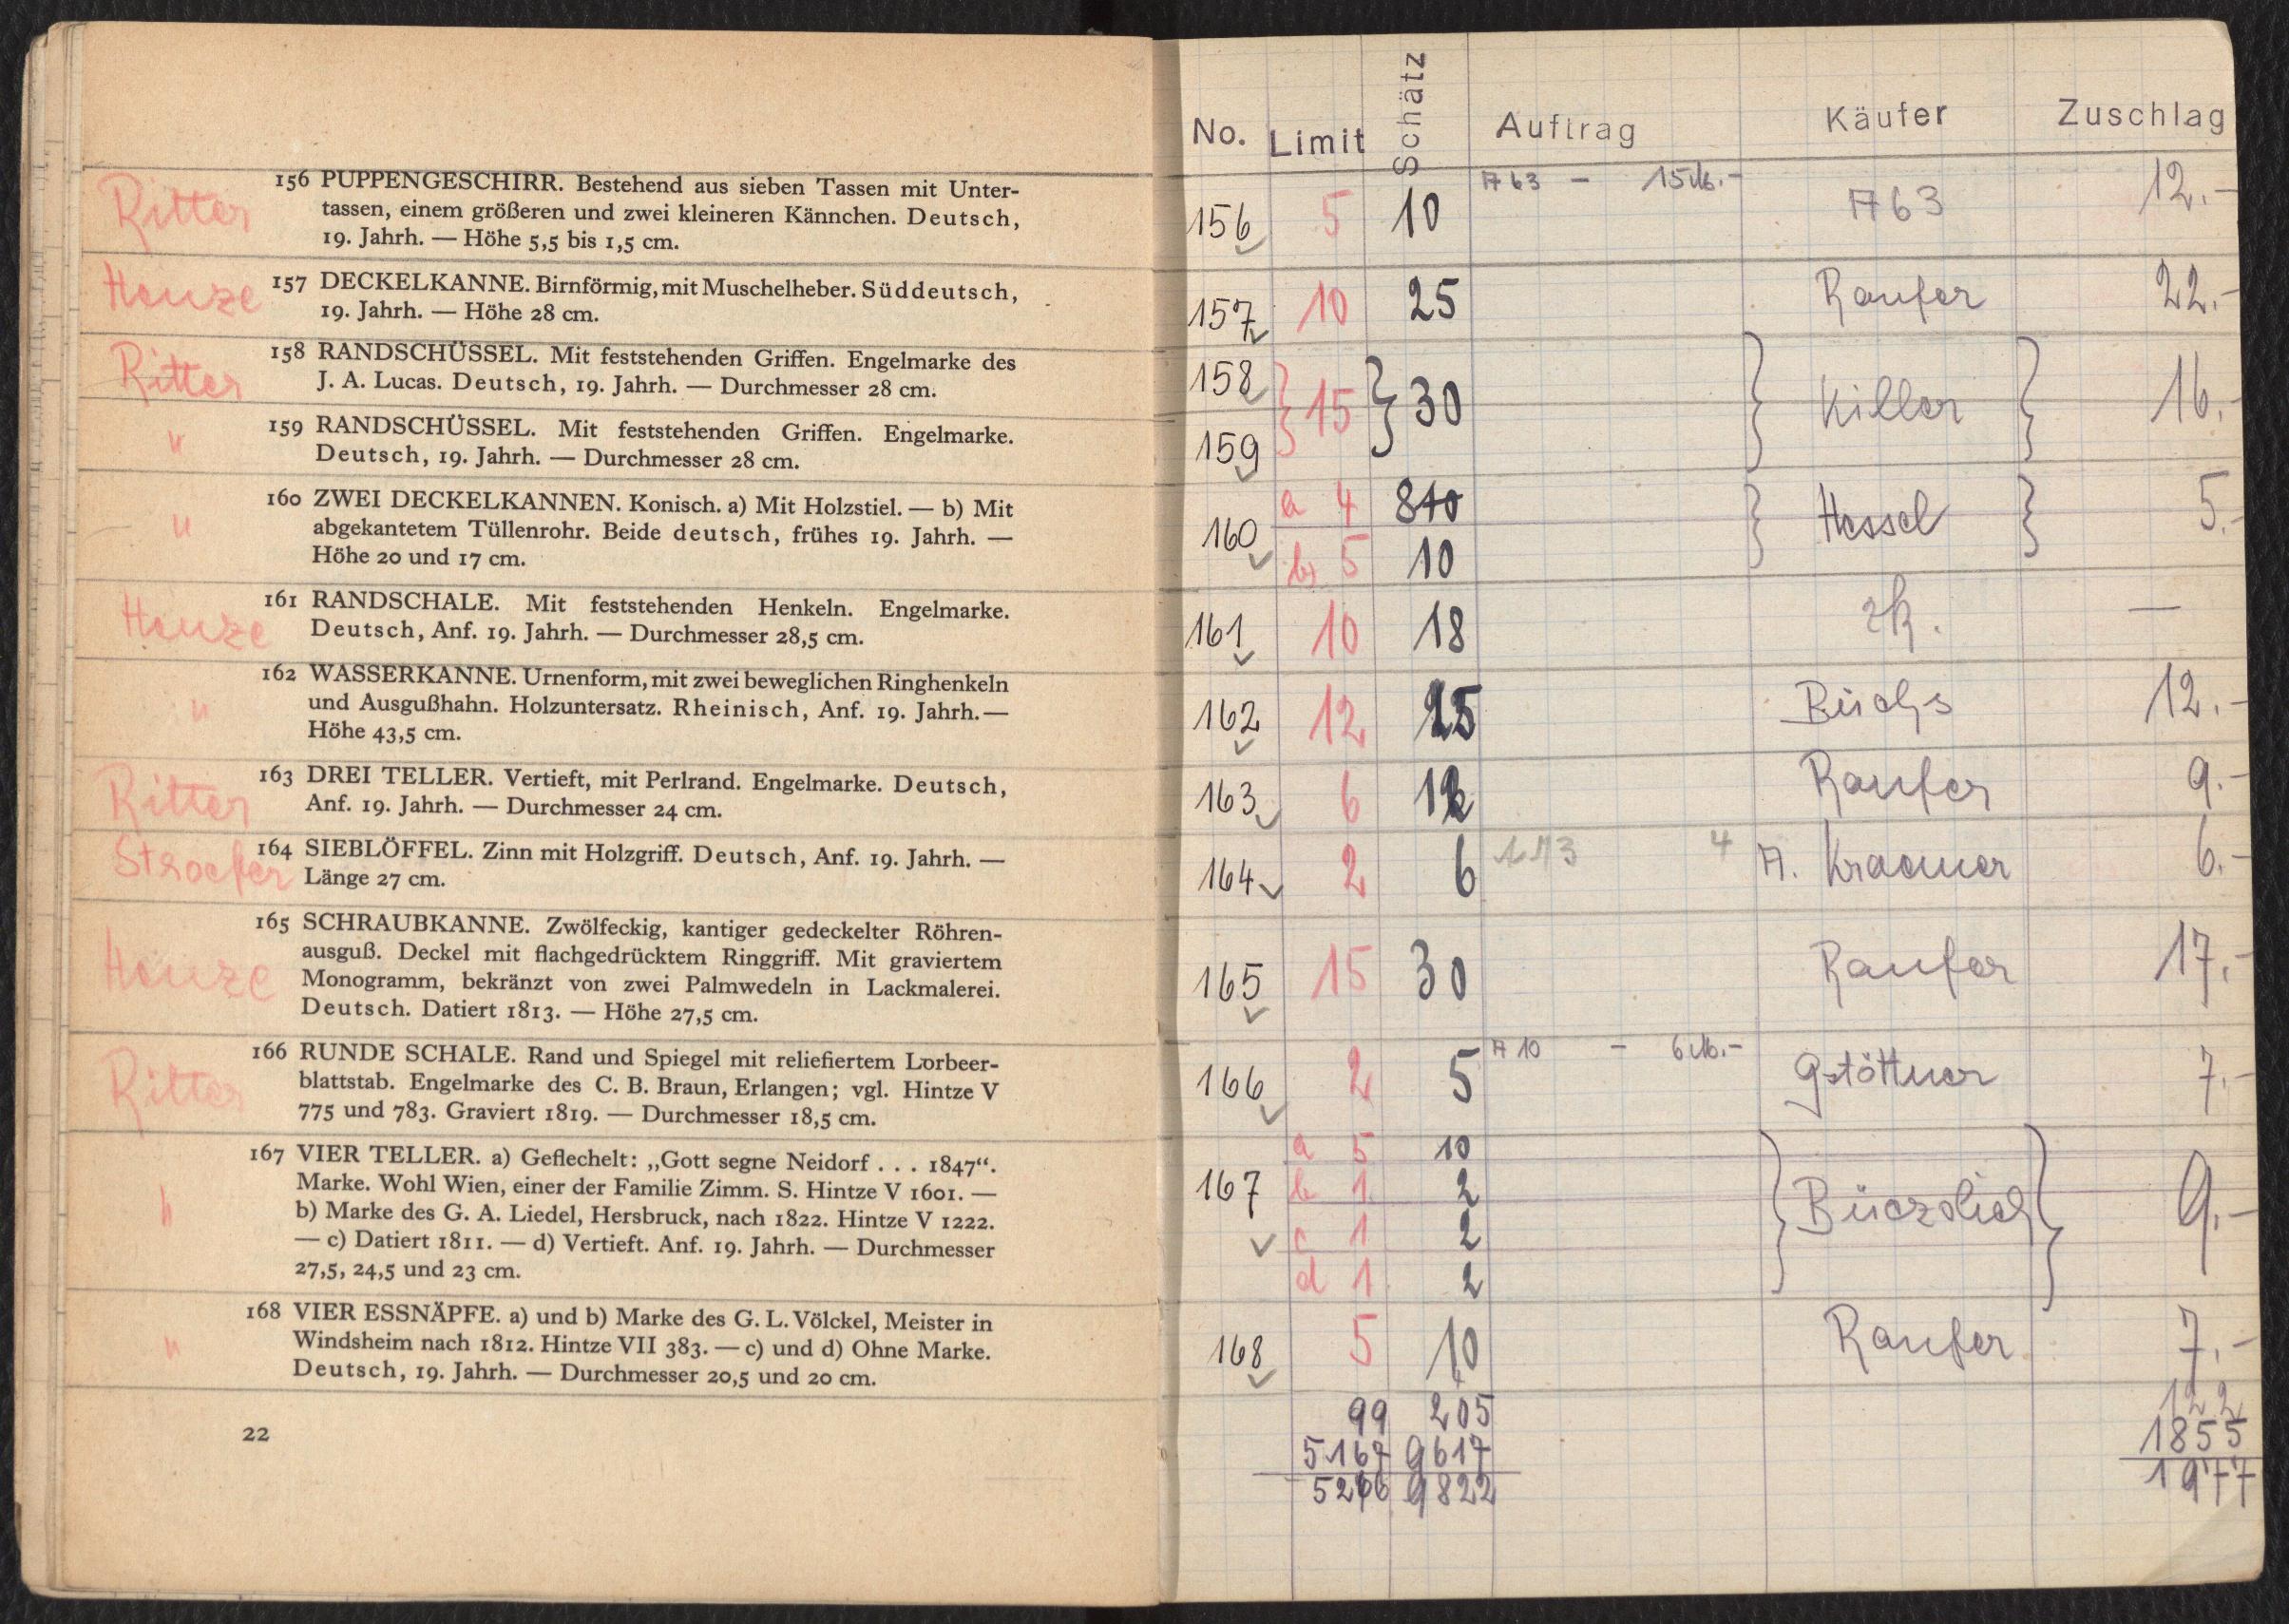 Ritter
156 PUPPENGESCHIRR. Bestehend aus sieben Tassen mit Unter-
tassen, einem größeren und zwei kleineren Kännchen. Deutsch,
19. Jahrh. — Höhe 5,5 bis 1,5 cm.
157 DECKELKANNE. Birnförmig, mit Muschelheber. Süddeutsch,
19. Jahrh. — Höhe 28 cm.
Ritter
158 RANDSCHÜSSEL. Mit feststehenden Griffen. Engelmarke des
J. A. Lucas. Deutsch, 19. Jahrh. — Durchmesser 28 cm.
"
159 RANDSCHÜSSEL. Mit feststehenden Griffen. Engelmarke.
Deutsch, 19. Jahrh. — Durchmesser 28 cm.
"
160 ZWEI DECKELKANNEN. Konisch. a) Mit Holzstiel. — b) Mit
abgekantetem Tüllenrohr. Beide deutsch, frühes 19. Jahrh. —
Höhe 20 und 17 cm.
161 RANDSCHALE. Mit feststehenden Henkeln. Engelmarke.
Deutsch, Anf. 19. Jahrh. — Durchmesser 28,5 cm.
"
162 WASSERKANNE. Urnenform, mit zwei beweglichen Ringhenkeln
und Ausgußhahn. Holzuntersatz. Rheinisch, Anf. 19. Jahrh. —
Höhe 43,5 cm.
Ritter
163 DREI TELLER. Vertieft, mit Perlrand. Engelmarke. Deutsch,
Anf. 19. Jahrh. — Durchmesser 24 cm.
Stroefer
164 SIEBLÖFFEL. Zinn mit Holzgriff. Deutsch, Anf. 19. Jahrh. —
Länge 27 cm.
165 SCHRAUBKANNE. Zwölfeckig, kantiger gedeckelter Röhren-
ausguß. Deckel mit flachgedrücktem Ringgriff. Mit graviertem
Monogramm, bekränzt von zwei Palmwedeln in Lackmalerei.
Deutsch. Datiert 1813. — Höhe 27,5 cm.
Ritter
166 RUNDE SCHALE. Rand und Spiegel mit reliefiertem Lorbeer-
blattstab. Engelmarke des C. B. Braun, Erlangen; vgl. Hintze V
775 und 783. Graviert 1819. — Durchmesser 18,5 cm.
"
167 VIER TELLER. a) Geflechelt: „Gott segne Neidorf . . . 1847“.
Marke. Wohl Wien, einer der Familie Zimm. S. Hintze V 1601. —
b) Marke des G. A. Liedel, Hersbruck, nach 1822. Hintze V 1222.
— c) Datiert 1811. — d) Vertieft. Anf. 19. Jahrh. — Durchmesser
27,5, 24,5 und 23 cm.
"
168 VIER ESSNÄPFE. a) und b) Marke des G. L. Völckel, Meister in
Windsheim nach 1812. Hintze VII 383. — c) und d) Ohne Marke.
Deutsch, 19. Jahrh. — Durchmesser 20,5 und 20 cm.
22
No. Limit Schätz Auftrag Käufer Zuschlag
A 63 — 15 M.-
156 5 10 A 63 12.-
157 10 25 Raufer 22.-
158
15 30 Killer 16.-
159
a 4 8
160 Hessel 5.-
b 5 10
161 10 18 zk. —
162 12 12.-
163 6 Raufer 9.-
164 2 6 4 A. Kraemer 6.-
165 15 30 Raufer 17.-
A 10 — 6 M.-
166 2 5 Gstöttner 7.-
a 5 10
167 b 1 2 9.-
c 1 2
d 1 2
168 5 10 Raufer 7.-
99 205 122
5167 9617 1855
5266 9822 1977